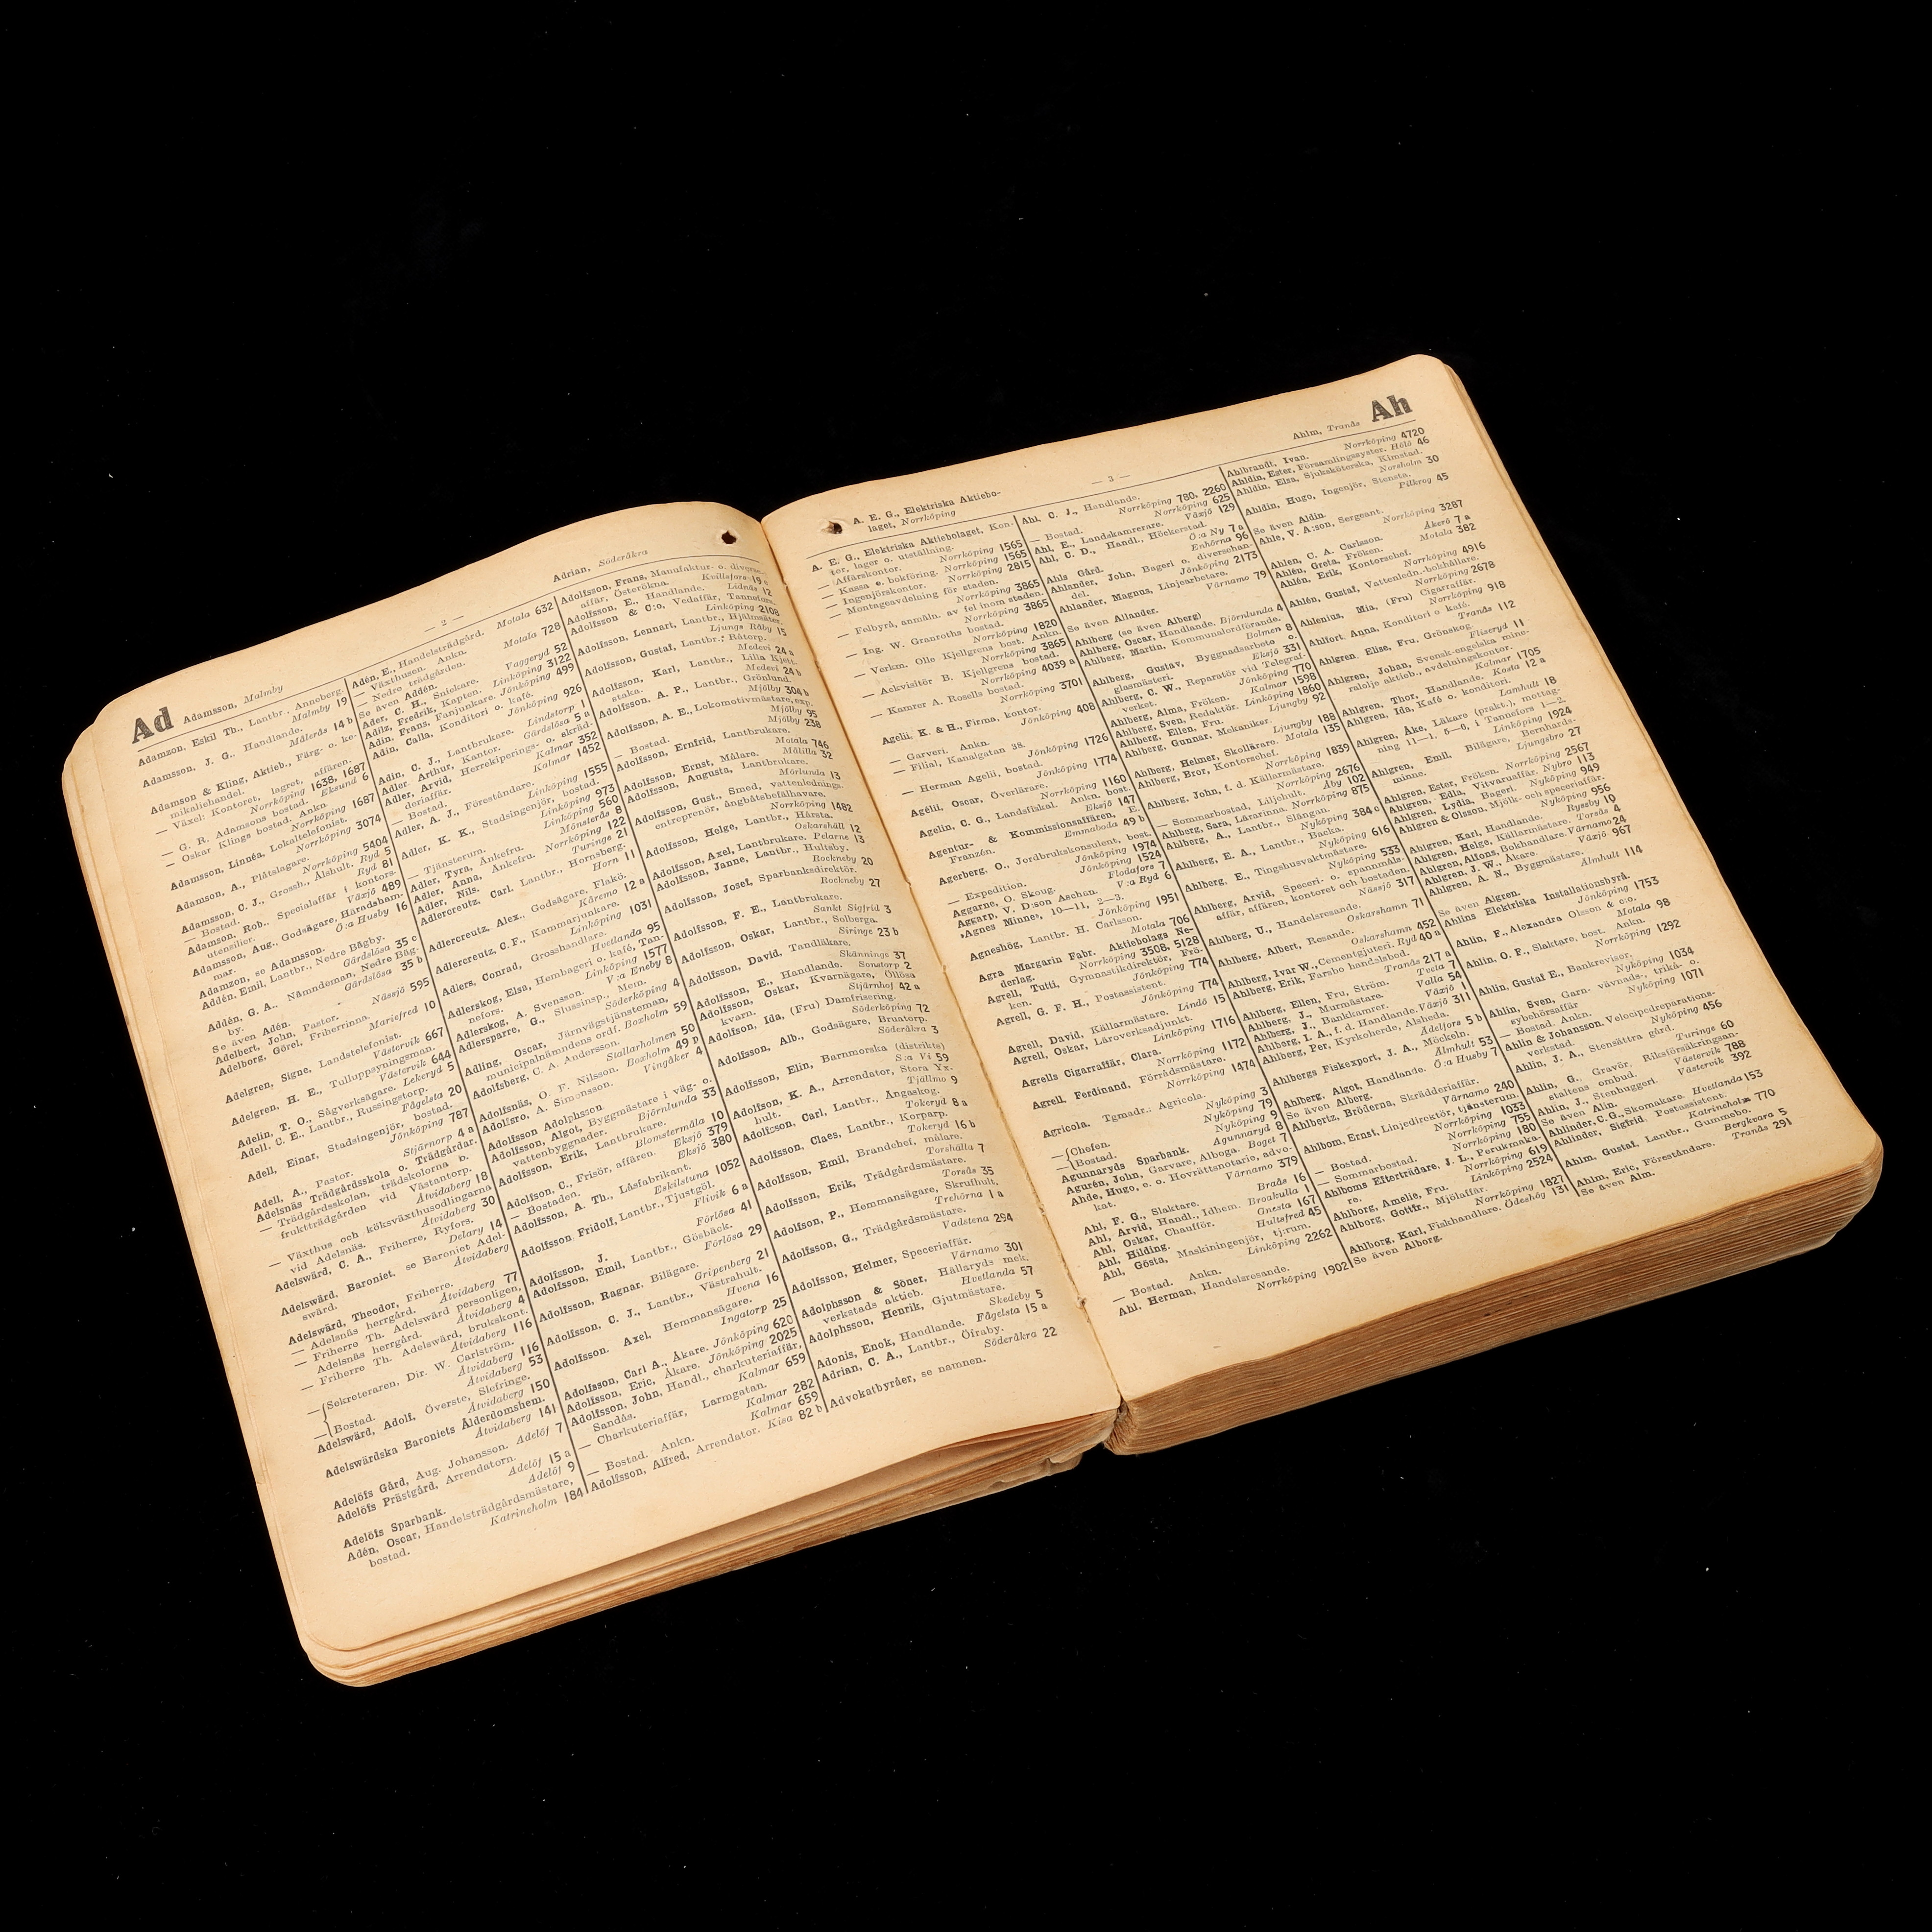 Ad
Adamsson, Malmby
— 2 —
Adrian, Söderåkra
Adamzon, Eskil Th., Lantbr., Anneberg.
Malmby 19
Adamsson, J. G., Handlande.
Målerås 14 b
Adamson & Kling, Aktieb., Färg- o. ke-
mikaliehandel.
— Växel: Kontoret, lagret, affären.
Norrköping 1638, 1687
— G. R. Adamsons bostad. Eksund 6
— Oskar Klings bostad. Ankn.
Norrköping 1687
Adamsson, Linnéa, Lokaltelefonist.
Norrköping 3074
Adamson, A., Plåtslagare.
Norrköping 5404
Adamsson, C. J., Grossh., Älshult. Ryd 5
— Bostad. Ryd 81
Adamson, Rob., Specialaffär i kontors-
utensilier. Växjö 489
Adamsson, Aug., Godsägare, Häradsham-
mar. Ö:a Husby 16
Adamzon, se Adamsson.
Addén, Emil, Lantbr., Nedre Bägby.
Gårdslösa 35 c
Addén, G. A., Nämndeman, Nedre Bäg-
by. Gårdslösa 35 b
Se även Adén.
Adelbert, John, Pastor. Nässjö 595
Adelborg, Görel, Friherrinna.
Mariefred 10
Adelgren, Signe, Landstelefonist.
Västervik 667
Adelgren, H. E., Tulluppsyningsman.
Västervik 644
Adelin, T. O., Sågverksägare. Lekeryd 5
Adell, C. E., Lantbr., Russingstorp.
Fågelsta 20
Adell, Einar, Stadsingenjör, bostad.
Jönköping 787
Adell, A., Pastor. Stjärnorp 4 a
Adelsnäs Trädgårdsskola o. Trädgårdar.
— Trädgårdsskolan, trädskolorna o.
fruktträdgården vid Västantorp.
Åtvidaberg 18
— Växthus och köksväxthusodlingarna
vid Adelsnäs. Åtvidaberg 30
Adelswärd, C. A., Friherre, Ryfors.
Delary 14
Adelswärd, Baroniet, se Baroniet Adel-
swärd. Åtvidaberg
Adelswärd, Theodor, Friherre.
— Adelsnäs herrgård. Åtvidaberg 77
— Friherre Th. Adelswärd personligen,
Adelsnäs herrgård. Åtvidaberg 4
— Friherre Th. Adelswärd, brukskont.
Åtvidaberg 116
— Sekreteraren, Dir. W. Carlström.
Åtvidaberg 116
— Bostad. Åtvidaberg 53
Adelswärd, Adolf, Överste, Slefringe.
Åtvidaberg 150
Adelswärdska Baroniets Ålderdomshem.
Åtvidaberg 141
Adelöfs Gård, Aug. Johansson. Adelöf 7
Adelöfs Prästgård, Arrendatorn.
Adelöf 15 a
Adelöfs Sparbank. Adelöf 9
Adén, Oscar, Handelsträdgårdsmästare,
bostad. Katrineholm 184
Adén, E., Handelsträdgård. Motala 632
— Växthusen. Ankn.
— Nedre trädgården. Motala 728
Se även Addén.
Ader, C. H., Snickare. Vaggeryd 52
Adilz, Fredrik, Kapten. Linköping 3122
Adin, Frans, Fanjunkare. Jönköping 499
Adin, Calla, Konditori o. kafé.
Jönköping 926
Adin, C. J., Lantbrukare. Lindstorp 1
Adler, Arthur, Kantor. Gårdslösa 5 a
Adler, Arvid, Herrekiperings- o. skräd-
deriaffär. Kalmar 352
— Bostad. Kalmar 1452
Adler, A. J., Föreståndare.
Linköping 1555
Adler, K. K., Stadsingenjör, bostad.
Linköping 973
— Tjänsterum. Linköping 560
Adler, Tyra, Ankefru. Mönsterås 8
Adler, Anna, Ankefru. Norrköping 122
Adler, Nils. Turinge 21
Adlercreutz, Carl, Lantbr., Hornsberg.
Horn 11
Adlercreutz, Alex., Godsägare, Flakö.
Kårsmo 12 a
Adlercreutz, C. F., Kammarjunkare.
Linköping 1031
Adlers, Conrad, Grosshandlare.
Hvetlanda 95
Adlerskog, Elsa, Hembageri o. kafé, Tan-
nefors. Linköping 1577
Adlerskog, A. Svensson. V:a Eneby 8
Adlersparre, G., Slussinsp., Mem.
Söderköping 4
Adling, Oscar, Järnvägstjänsteman,
municipalnämndens ordf. Boxholm 59
Adolfsberg, C. A. Andersson.
Stallarholmen 50
Adolfsnäs, O. F. Nilsson. Boxholm 49 p
Adolfsro, A. Simonsson. Vingåker 4
Adolfsson Adolphson
Adolfsson, Algot, Byggmästare i väg- o.
vattenbyggnader. Björnlunda 33
Adolfsson, Erik, Lantbrukare.
Blomstermåla 10
Adolfson, C., Frisör, affären. Eksjö 379
— Bostaden. Eksjö 380
Adolfsson, A. Th., Låsfabrikant.
Eskilstuna 1052
Adolfsson, Fridolf, Lantbr., Tjustgöl.
Flivik 6 a
Adolfsson, J. Förlösa 41
Adolfsson, Emil, Lantbr., Gösbäck.
Förlösa 29
Adolfsson, Ragnar, Bilägare.
Gripenberg 21
Adolfsson, C. J., Lantbr., Västrahult.
Hvena 16
Adolfsson, Axel, Hemmansägare.
Ingatorp 25
Adolfsson, Carl A., Åkare. Jönköping 620
Adolfsson, Eric, Åkare. Jönköping 2025
Adolfsson, John, Handl., charkuteriaffär,
Sandås. Kalmar 659
— Charkuteriaffär, Larmgatan.
Kalmar 282
— Bostad. Ankn. Kalmar 659
Adolfsson, Alfred, Arrendator. Kisa 82 b
Adolfsson, Frans, Manufaktur- o. diverse-
affär, Österökna. Kvillsfors 19
Adolfsson, E., Handlande. Lidnäs 12
Adolfsson & C:o, Vedaffär, Tannefors.
Linköping 2108
Adolfsson, Lennart, Lantbr., Hjälmsäter.
Ljungs Råby 15
Adolfsson, Gustaf, Lantbr., Råtorp.
Medevi 24 a
Adolfsson, Karl, Lantbr., Lilla Kjett-
staka. Medevi 24 b
Adolfsson, A. P., Lantbr., Grönlund.
Mjölby 304 b
Adolfsson, A. E., Lokomotivmästare, exp.
Mjölby 95
— Bostad. Mjölby 238
Adolfsson, Ernfrid, Lantbrukare.
Motala 746
Adolfsson, Ernst, Målare. Målilla 32
Adolfsson, Augusta, Lantbrukare.
Mörlunda 13
Adolfsson, Gust., Smed, vattenlednings-
entreprenör, ångbåtsbefälhavare.
Norrköping 1482
Adolfsson, Helge, Lantbr., Hårsta.
Oskarshäll 12
Adolfsson, Axel, Lantbrukare. Pelarne 13
Adolfsson, Janne, Lantbr., Hultsby.
Rockneby 20
Adolfsson, Josef, Sparbanksdirektör.
Rockneby 27
Adolfsson, F. E., Lantbrukare.
Sankt Sigfrid 3
Adolfsson, Oskar, Lantbr., Solberga.
Siringe 23 b
Adolfsson, David, Tandläkare.
Skänninge 37
Adolfsson, E., Handlande. Sonstorp 2
Adolfsson, Oskar, Kvarnägare, Öllösa
kvarn. Stjärnhof 42 a
Adolfson, Ida, (Fru) Damfrisering.
Söderköping 72
Adolfsson, Alb., Godsägare, Bruatorp.
Söderåkra 3
Adolfsson, Elin, Barnmorska (distrikts)
S:a Vi 59
Adolfson, K. A., Arrendator, Stora Yx-
hult. Tjällmo 9
Adolfsson, Carl, Lantbr., Angaskog.
Tokeryd 8 a
Adolfsson, Claes, Lantbr., Korparp.
Tokeryd 16 b
Adolfsson, Emil, Brandchef, målare.
Torshälla 7
Adolfsson, Erik, Trädgårdsmästare.
Torsås 35
Adolfson, P., Hemmansägare, Skrufhult.
Trehörna 1 a
Adolfsson, G., Trädgårdsmästare.
Vadstena 294
Adolfsson, Helmer, Speceriaffär.
Värnamo 301
Adolphsson & Söner, Hällaryds mek.
verkstads aktieb. Hvetlanda 57
Adolphsson, Henrik, Gjutmästare.
Skedeby 5
Adonis, Enok, Handlande. Fågelsta 15 a
Adrian, C. A., Lantbr., Öfraby.
Söderåkra 22
Advokatbyråer, se namnen.
A. E. G., Elektriska Aktiebo-
laget, Norrköping
— 3 —
Ahlm, Tranås
Ah
A. E. G., Elektriska Aktiebolaget, Kon-
tor, lager o. utställning.
Norrköping 1565
— Affärskontor. Norrköping 1565
— Kassa o. bokföring. Norrköping 2815
— Ingenjörskontor.
— Montageavdelning för staden.
Norrköping 3865
— Felbyrå, anmäln. av fel inom staden.
Norrköping 3865
— Ing. W. Granroths bostad.
Norrköping 1820
— Verkm. Olle Kjellgrens bost. Ankn.
Norrköping 3865
— Ackvisitör B. Kjellgrens bostad.
Norrköping 4039 a
— Kamrer A. Rosells bostad.
Norrköping 3701
Agelii, K. & H., Firma, kontor.
Jönköping 408
— Garveri. Ankn.
— Filial, Kanalgatan 38.
Jönköping 1726
— Herman Agelii, bostad.
Jönköping 1774
Agélii, Oscar, Överlärare.
Norrköping 1160
Agelin, C. G., Landsfiskal. Ankn. bost.
Eksjö 147
Agentur- & Kommissionsaffären, E.
Franzén. Emmaboda 49 b
Agerberg, O., Jordbrukskonsulent, bost.
Jönköping 1974
— Expedition. Jönköping 1524
Aggarne, O. Skoug. Flodafors 7
Aggarp, V. D:son Aschan. V:a Ryd 6
»Agnes Minne», 10—11, 2—3.
Jönköping 1951
Agneshög, Lantbr. H. Carlsson.
Motala 706
Agra Margarin Fabr. Aktiebolags Ne-
derlag. Norrköping 3508, 5128
Agrell, Tutti, Gymnastikdirektör, Frö-
ken. Jönköping 774
Agrell, G. F. H., Postassistent.
Jönköping 774
Agrell, David, Källarmästare. Lindö 15
Agrell, Oskar, Läroverksadjunkt.
Linköping 1716
Agrells Cigarraffär, Clara.
Norrköping 1172
Agrell, Ferdinand, Förrådsmästare.
Norrköping 1474
Agricola. Tgmadr.: Agricola.
Nyköping 3
— Chefen. Nyköping 79
— Bostad. Nyköping 9
Agunnaryds Sparbank. Agunnaryd 8
Agurén, John, Garvare, Alboga. Boget 7
Ahde, Hugo, e. o. Hovrättsnotarie, advo-
kat. Värnamo 379
Ahl, F. G., Slaktare. Braås 16
Ahl, Arvid, Handl., Idhem. Broakulla 1
Ahl, Oskar, Chaufför. Gnesta 167
Ahl, Hilding. Hultsfred 45
Ahl, Gösta, Maskiningenjör, tj:rum.
Linköping 2262
— Bostad. Ankn.
Ahl, Herman, Handelsresande.
Norrköping 1902
Ahl, C. J., Handlande.
Norrköping 780, 2260
— Bostad. Norrköping 625
Ahl, E., Landskamrerare. Växjö 129
Ahl, C. D., Handl., Höckerstad.
Ö:a Ny 7 a
Ahls Gård. Enhörna 96
Ahlander, John, Bageri o. diversehan-
del. Jönköping 2173
Ahlander, Magnus, Linjearbetare.
Värnamo 79
Se även Allander.
Ahlberg (se även Alberg)
Ahlberg, Oscar, Handlande. Björnlunda 4
Ahlberg, Martin, Kommunalordförande.
Bolmen 8
Ahlberg, Gustav, Byggnadsarbete o.
glasmästeri. Eksjö 331
Ahlberg, C. W., Reparatör vid Telegraf-
verket. Jönköping 770
Ahlberg, Alma, Fröken. Kalmar 1598
Ahlberg, Sven, Redaktör. Linköping 1860
Ahlberg, Ellen, Fru. Ljungby 92
Ahlberg, Gunnar, Mekaniker.
Ljungby 188
Ahlberg, Helmer, Skollärare. Motala 135
Ahlberg, Bror, Kontorschef.
Norrköping 1839
Ahlberg, John, f. d. Källarmästare.
Norrköping 2676
— Sommarbostad, Liljehult. Åby 102
Ahlberg, Sara, Lärarinna. Norrköping 875
Ahlberg, A., Lantbr., Slängan.
Nyköping 384 c
Ahlberg, E. A., Lantbr., Backa.
Nyköping 616
Ahlberg, E., Tingshusvaktmästare.
Nyköping 533
Ahlberg, Arvid, Speceri- o. spannmåls-
affär, affären, kontoret och bostaden.
Nässjö 317
Ahlberg, U., Handelsresande.
Oskarshamn 71
Ahlberg, Albert, Resande.
Oskarshamn 452
Ahlberg, Ivar W., Cementgjuteri. Ryd 40 a
Ahlberg, Erik, Farsbo handelsbod.
Tranås 217 a
Ahlberg, Ellen, Fru, Ström. Tveta 7
Ahlberg, J., Murmästare. Valla 54
Ahlberg, J., Bankkamrer. Växjö 1
Ahlberg, I. A., f. d. Handlande. Växjö 311
Ahlberg, Per, Kyrkoherde, Alsheda.
Ädelfors 5 b
Ahlbergs Fiskexport, J. A., Möckeln.
Älmhult 53
Ahlberg, Algot, Handlande. Ö:a Husby 7
Se även Alberg.
Ahlbertz, Bröderna, Skrädderiaffär.
Värnamo 240
Ahlbom, Ernst, Linjedirektör, tjänsterum.
Norrköping 1033
— Bostad. Norrköping 755
— Sommarbostad. Norrköping 180
Ahlboms Efterträdare, J. L., Perukmaka-
re. Norrköping 619
Ahlborg, Amelie, Fru. Linköping 2524
Ahlborg, Gottfr., Mjölaffär.
Norrköping 1827
Ahlborg, Karl, Fiskhandlare. Ödeshög 131
Se även Alborg.
Ahlbrandt, Ivan. Norrköping 4720
Ahldin, Ester, Församlingssyster. Hölö 46
Ahldin, Elsa, Sjuksköterska, Kimstad.
Norsholm 30
Ahldin, Hugo, Ingenjör, Stensta.
Pilkrog 45
Se även Aldin.
Ahle, V. A:son, Sergeant.
Norrköping 3287
Ahlen, C. A. Carlsson. Åkerö 7 a
Ahlén, Greta, Fröken. Motala 382
Ahlén, Erik, Kontorschef.
Norrköping 4916
Ahlén, Gustaf, Vattenledn.-bokhållare.
Norrköping 2678
Ahlenius, Mia, (Fru) Cigarraffär.
Norrköping 918
Ahlfort, Anna, Konditori o kafé.
Tranås 112
Ahlgren, Elise, Fru, Grönskog.
Fliseryd 11
Ahlgren, Johan, Svensk-engelska mine-
ralolje aktieb., avdelningskontor.
Kalmar 1705
Ahlgren, Thor, Handlande. Kosta 12 a
Ahlgren, Ida, Kafé o. konditori.
Lamhult 18
Ahlgren, Åke, Läkare (prakt.), mottag-
ning 11—1, 5—6, i Tannefors 1—2.
Linköping 1924
Ahlgren, Emil, Bilägare, Bernhards-
minne. Ljungsbro 27
Ahlgren, Ester, Fröken. Norrköping 2567
Ahlgren, Edla, Vitvaruaffär. Nybro 113
Ahlgren, Lydia, Bageri. Nyköping 949
Ahlgren & Olsson, Mjölk- och speceriaffär.
Nyköping 956
Ahlgren, Karl, Handlande. Ryssby 10
Ahlgren, Helge, Källarmästare. Torsås 4
Ahlgren, Alfons, Bokhandlare. Värnamo 24
Ahlgren, J. W., Åkare. Växjö 967
Ahlgren, A. N., Byggmästare.
Älmhult 114
Se även Algren.
Ahlins Elektriska Installationsbyrå.
Jönköping 1753
Ahlin, F., Alexandra Olsson & c:o.
Motala 98
Ahlin, O. F., Slaktare, bost. Ankn.
Norrköping 1292
Ahlin, Gustaf E., Bankrevisor.
Nyköping 1034
Ahlin, Sven, Garn- vävnads-, trikå- o.
sybehörsaffär Nyköping 1071
— Bostad. Ankn.
Ahlin & Johansson, Velocipedreparations-
verkstad. Nyköping 456
Ahlin, J. A., Stensättra gård.
Turinge 60
Ahlin, G. Gravör, Riksförsäkringsan-
staltens ombud. Västervik 788
Ahlin, J., Stenhuggeri. Västervik 392
Se även Alin.
Ahlinder, C. G., Skomakare. Hvetlanda 153
Ahlinder, Sigfrid, Postassistent.
Katrineholm 770
Ahlm, Gustaf, Lantbr., Gunnebo.
Bergkvara 5
Ahlm, Eric, Föreståndare. Tranås 291
Se även Alm.